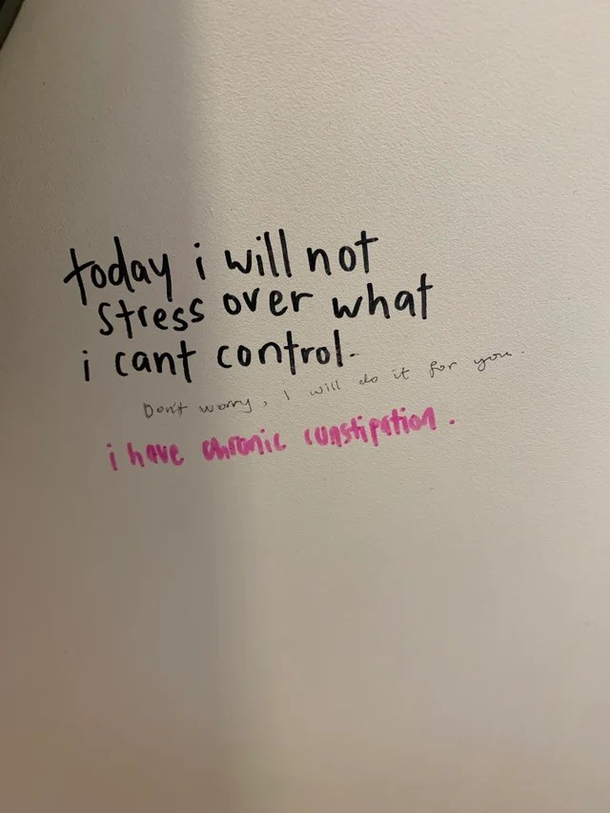 today i will not
stress over what
i cant control.
Don't worry, I will do it for you.
i have chronic constipation.